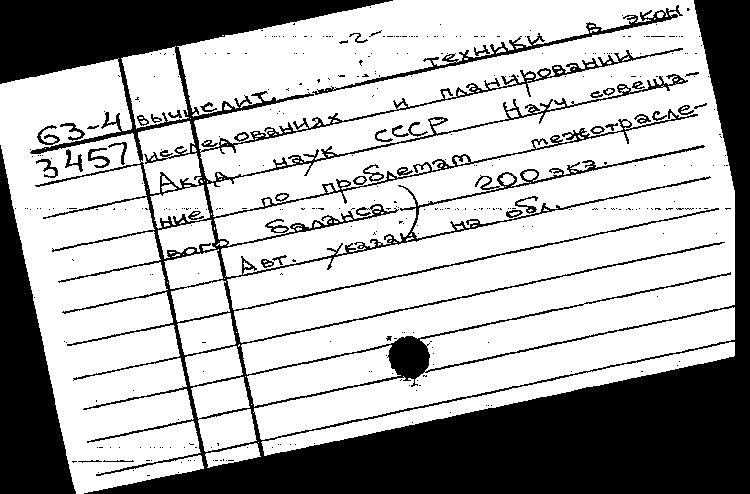 -2-
63-4 вычислит. техники в экон.
3457 исследованиях и планировании
Акад. наук СССР Науч. совеща-
ние по проблемам межотрасле-
вого баланса.) 200 экз.
Авт. указан на обл.